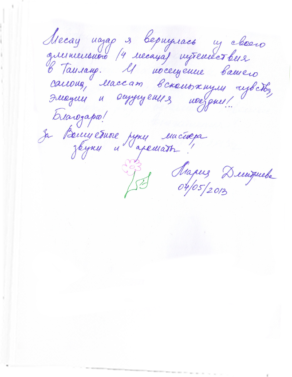 Месяц назад я вернулась из своего
длительного (4 месяца) путешествия
в Таиланд. И посещение вашего
салона, массаж всколыхнули чувства,
эмоции и ощущения поездки!..
Благодарю!
За Волшебные руки мастера,
звуки и ароматы!
Мария Дмитриева
04/05/2013